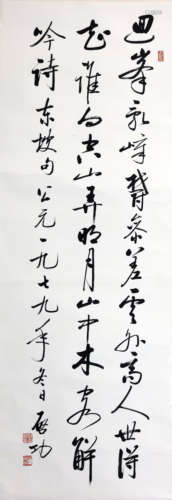 迴峯亂嶂鬱參差雲外高人世得
知誰向空山弄明月山中木客解
吟詩 東坡句 公元一九七九年冬日 啟功